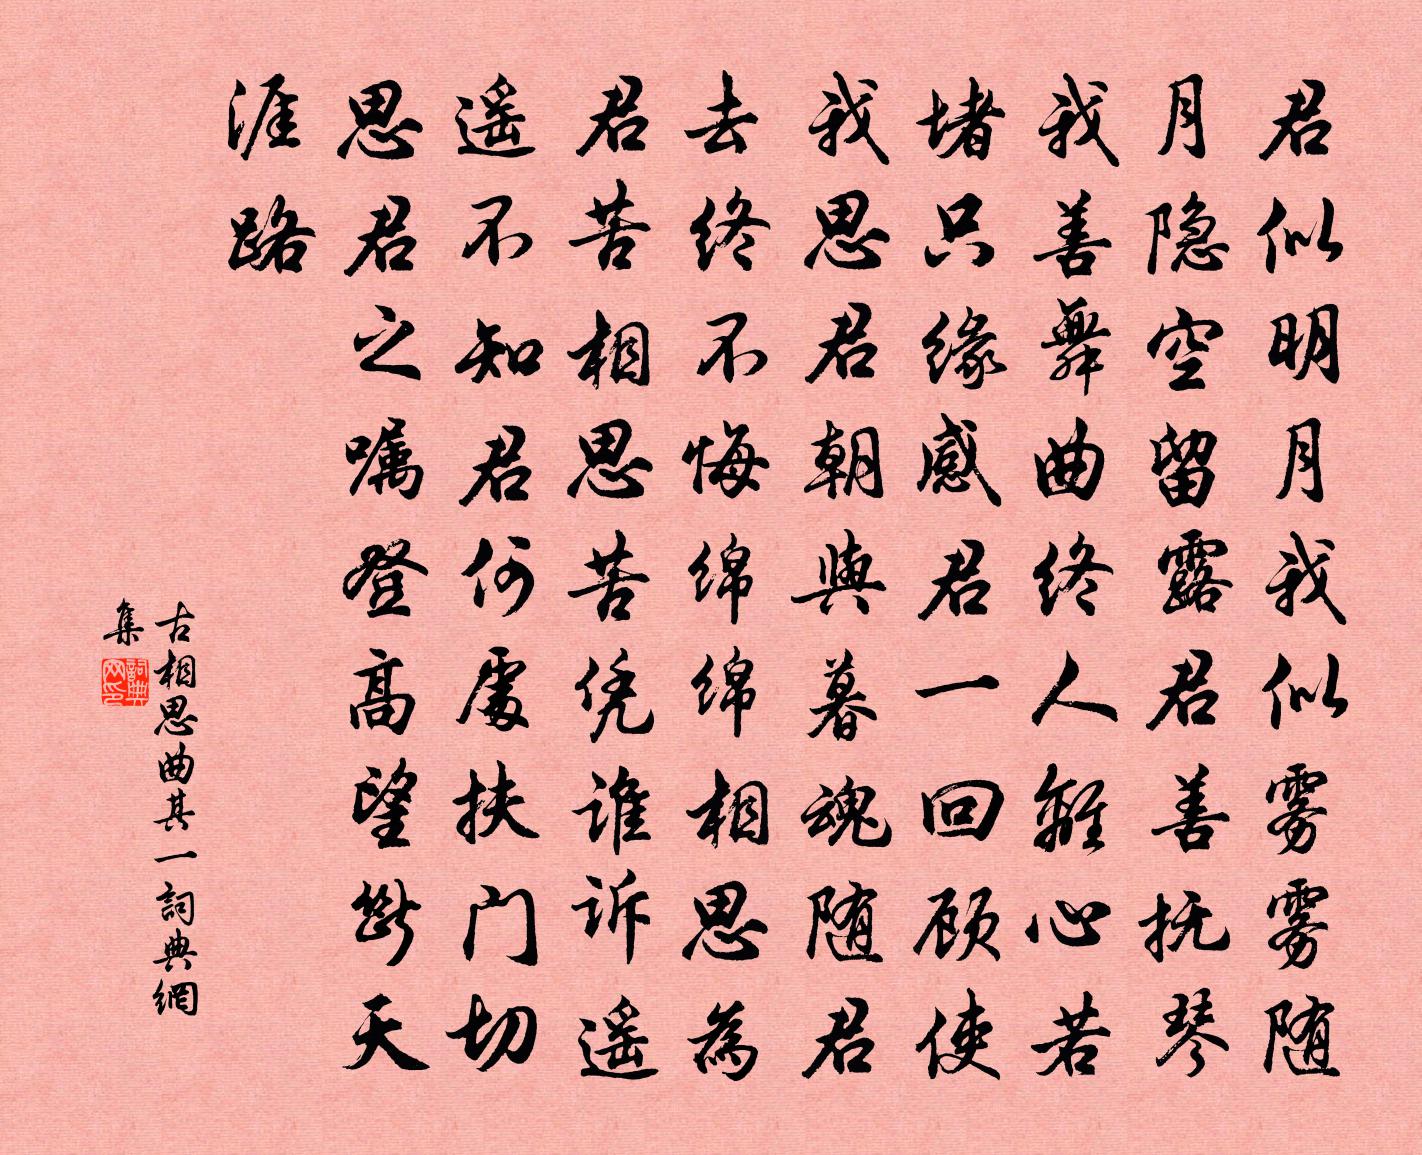 君似明月我似雾雾随
月隐空留露君善抚琴
我善舞曲终人離心若
堵只缘感君一回顾使
我思君朝與暮魂随君
去终不悔绵绵相思為
君苦相思苦凭谁诉遥
遥不知君何處扶门切
思君之嘱登高望斷天
涯路
古相思曲其一詞典網
集
詞典
网印